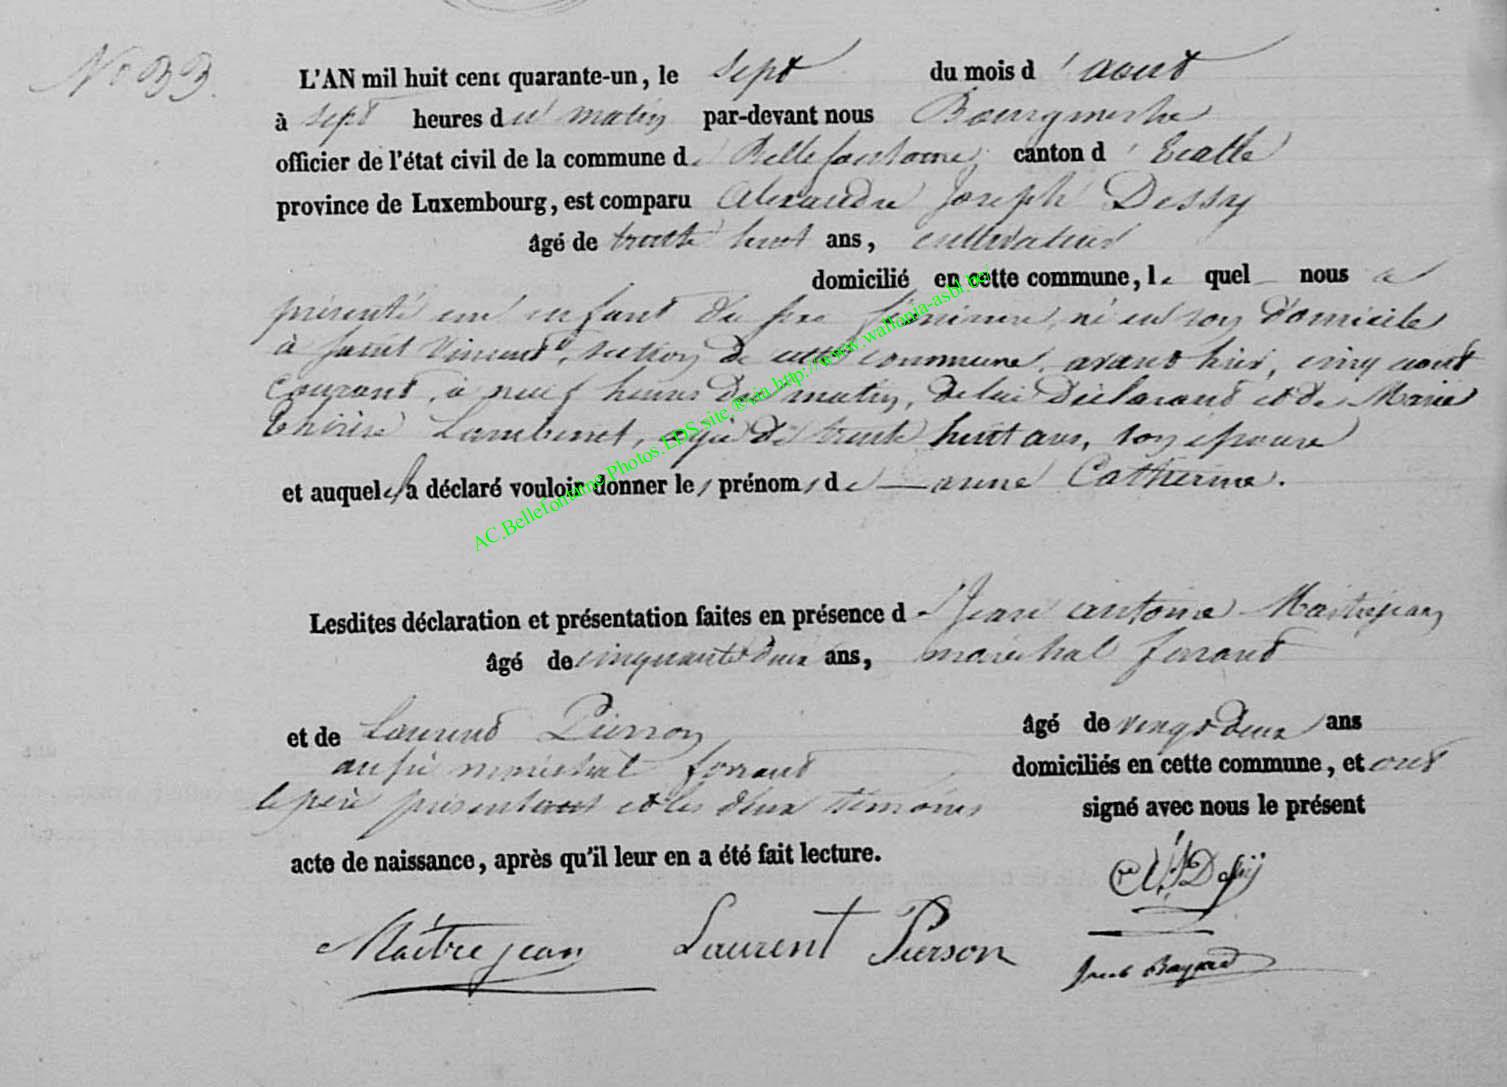 N° 33.
L'AN mil huit cent quarante-un, le sept du mois d'aout
à sept heures du matin par-devant nous Bourgmestre
officier de l'état civil de la commune de Bellefontaine, canton d'Etalle
province de Luxembourg, est comparu Alexandre Joseph Dessoy
âgé de trente huit ans, cultivateur
domicilié en cette commune, le quel nous a
présenté un enfant du sexe féminin, né en son domicile
à Saint Vincent, section de cette commune, avant hier, cinq aout
courant, à neuf heures du matin, de lui déclarant et de Marie
Thérèse Lambinet, agée de trente huit ans, son epouse
et auquel a déclaré vouloir donner les prénoms de — anne Catherine.
Lesdites déclaration et présentation faites en présence d Jean antoine Maitrejean
âgé de cinquante deux ans, maréchal ferrant
et de Laurent Pierson âgé de vingt deux ans
aussi maréchal ferrant domiciliés en cette commune, et ont
le père présentant et les deux témoins signé avec nous le présent
acte de naissance, après qu'il leur en a été fait lecture.
Maitrejean Laurent Pierson
AC.Bellefontaine.Photos.EDS.site ®via http://www.wallonia-asbl.be/